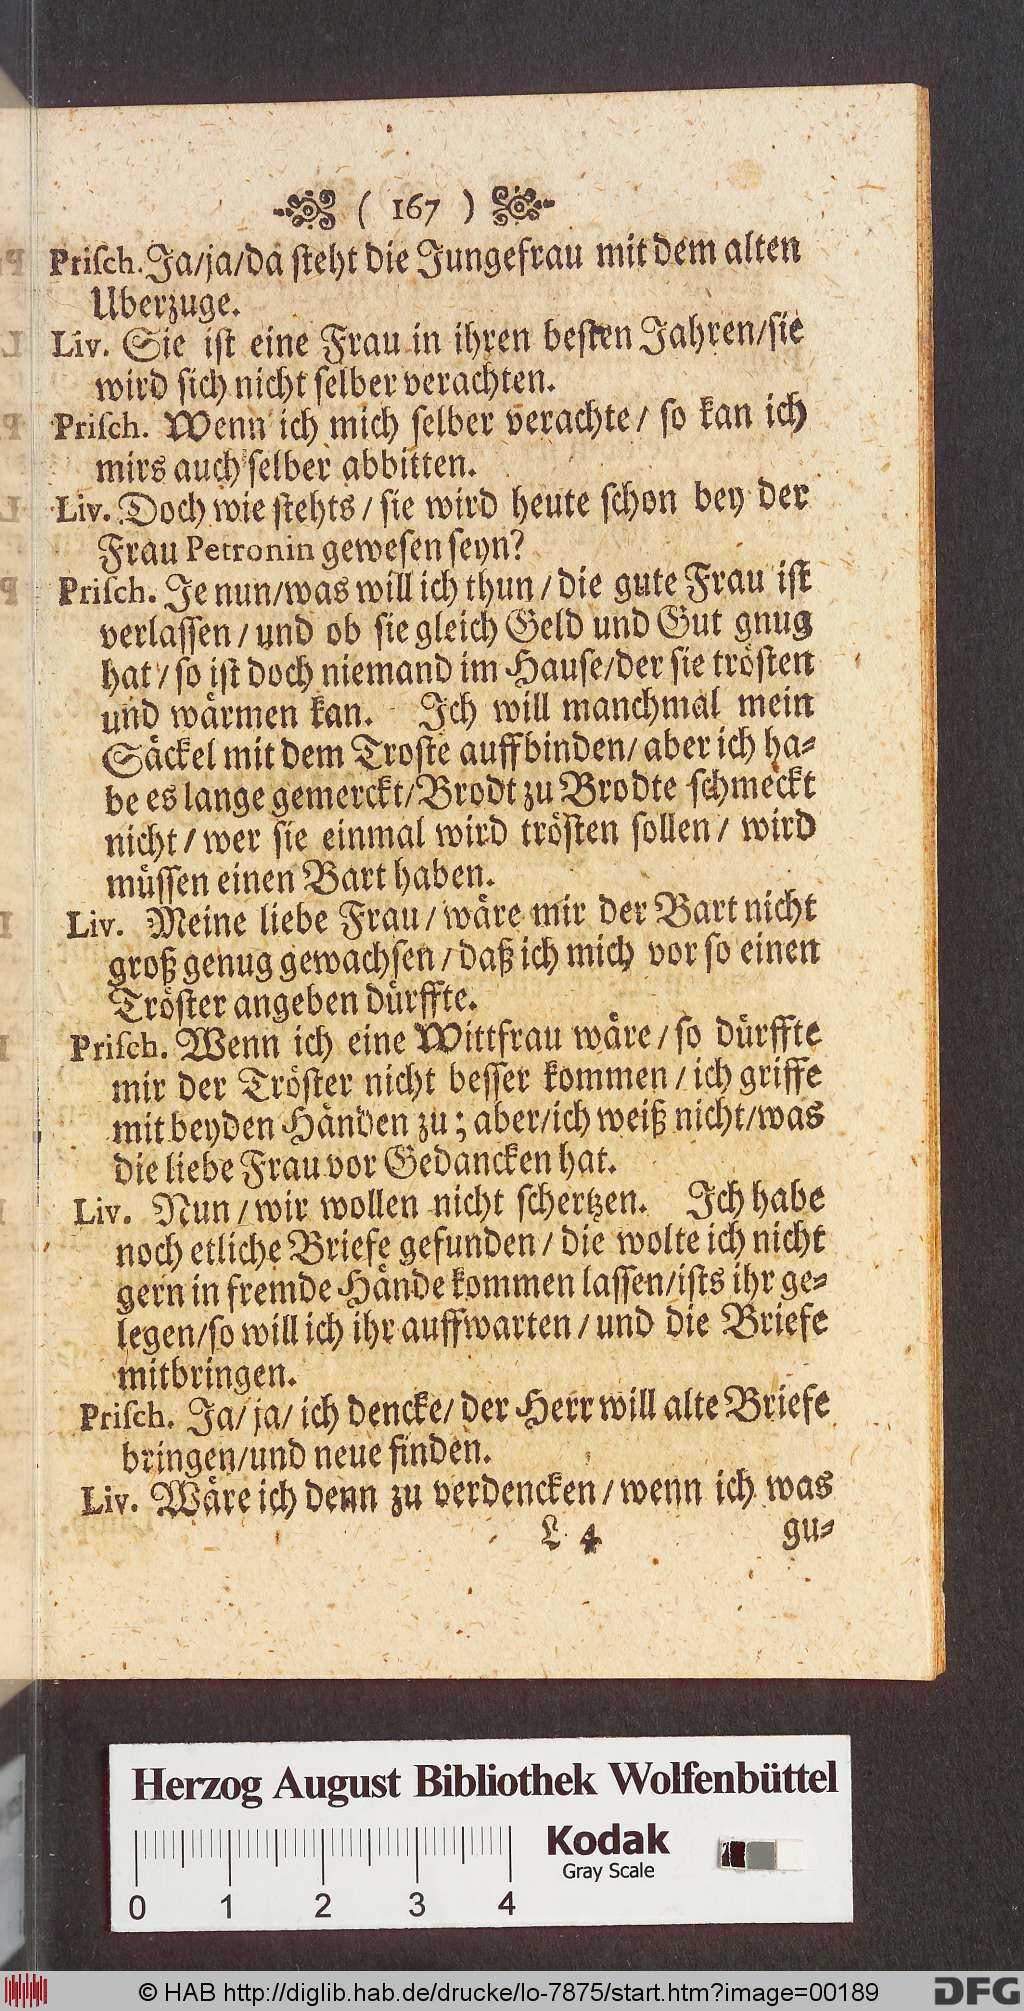 ( 167 )
Prisch. Ja/ja/da steht die Jungefrau mit dem alten
Uberzuge.
Liv. Sie ist eine Frau in ihren besten Jahren/sie
wird sich nicht selber verachten.
Prisch. Wenn ich mich selber verachte/ so kan ich
mirs auch selber abbitten.
Liv. Doch wie stehts/ sie wird heute schon bey der
Frau Petronin gewesen seyn?
Prisch. Je nun/was will ich thun/ die gute Frau ist
verlassen/ und ob sie gleich Geld und Gut gnug
hat/ so ist doch niemand im Hause/der sie trösten
und wärmen kan. Ich will manchmal mein
Säckel mit dem Troste auffbinden/ aber ich ha-
be es lange gemerckt/Brodt zu Brodte schmeckt
nicht/ wer sie einmal wird trösten sollen/ wird
müssen einen Bart haben.
Liv. Meine liebe Frau/ wäre mir der Bart nicht
groß genug gewachsen/ daß ich mich vor so einen
Tröster angeben dürffte.
Prisch. Wenn ich eine Wittfrau wäre/ so dürffte
mir der Tröster nicht besser kommen/ ich griffe
mit beyden Händen zu; aber/ich weiß nicht/was
die liebe Frau vor Gedancken hat.
Liv. Nun/ wir wollen nicht schertzen. Ich habe
noch etliche Briefe gefunden/ die wolte ich nicht
gern in fremde Hände kommen lassen/ists ihr ge-
legen/so will ich ihr auffwarten/ und die Briefe
mitbringen.
Prisch. Ja/ ja/ ich dencke/ der Herr will alte Briefe
bringen/und neue finden.
Liv. Wäre ich denn zu verdencken/ wenn ich was
L 4 gu-
Herzog August Bibliothek Wolfenbüttel
Kodak
Gray Scale
0 1 2 3 4
© HAB http://diglib.hab.de/drucke/lo-7875/start.htm?image=00189
DFG